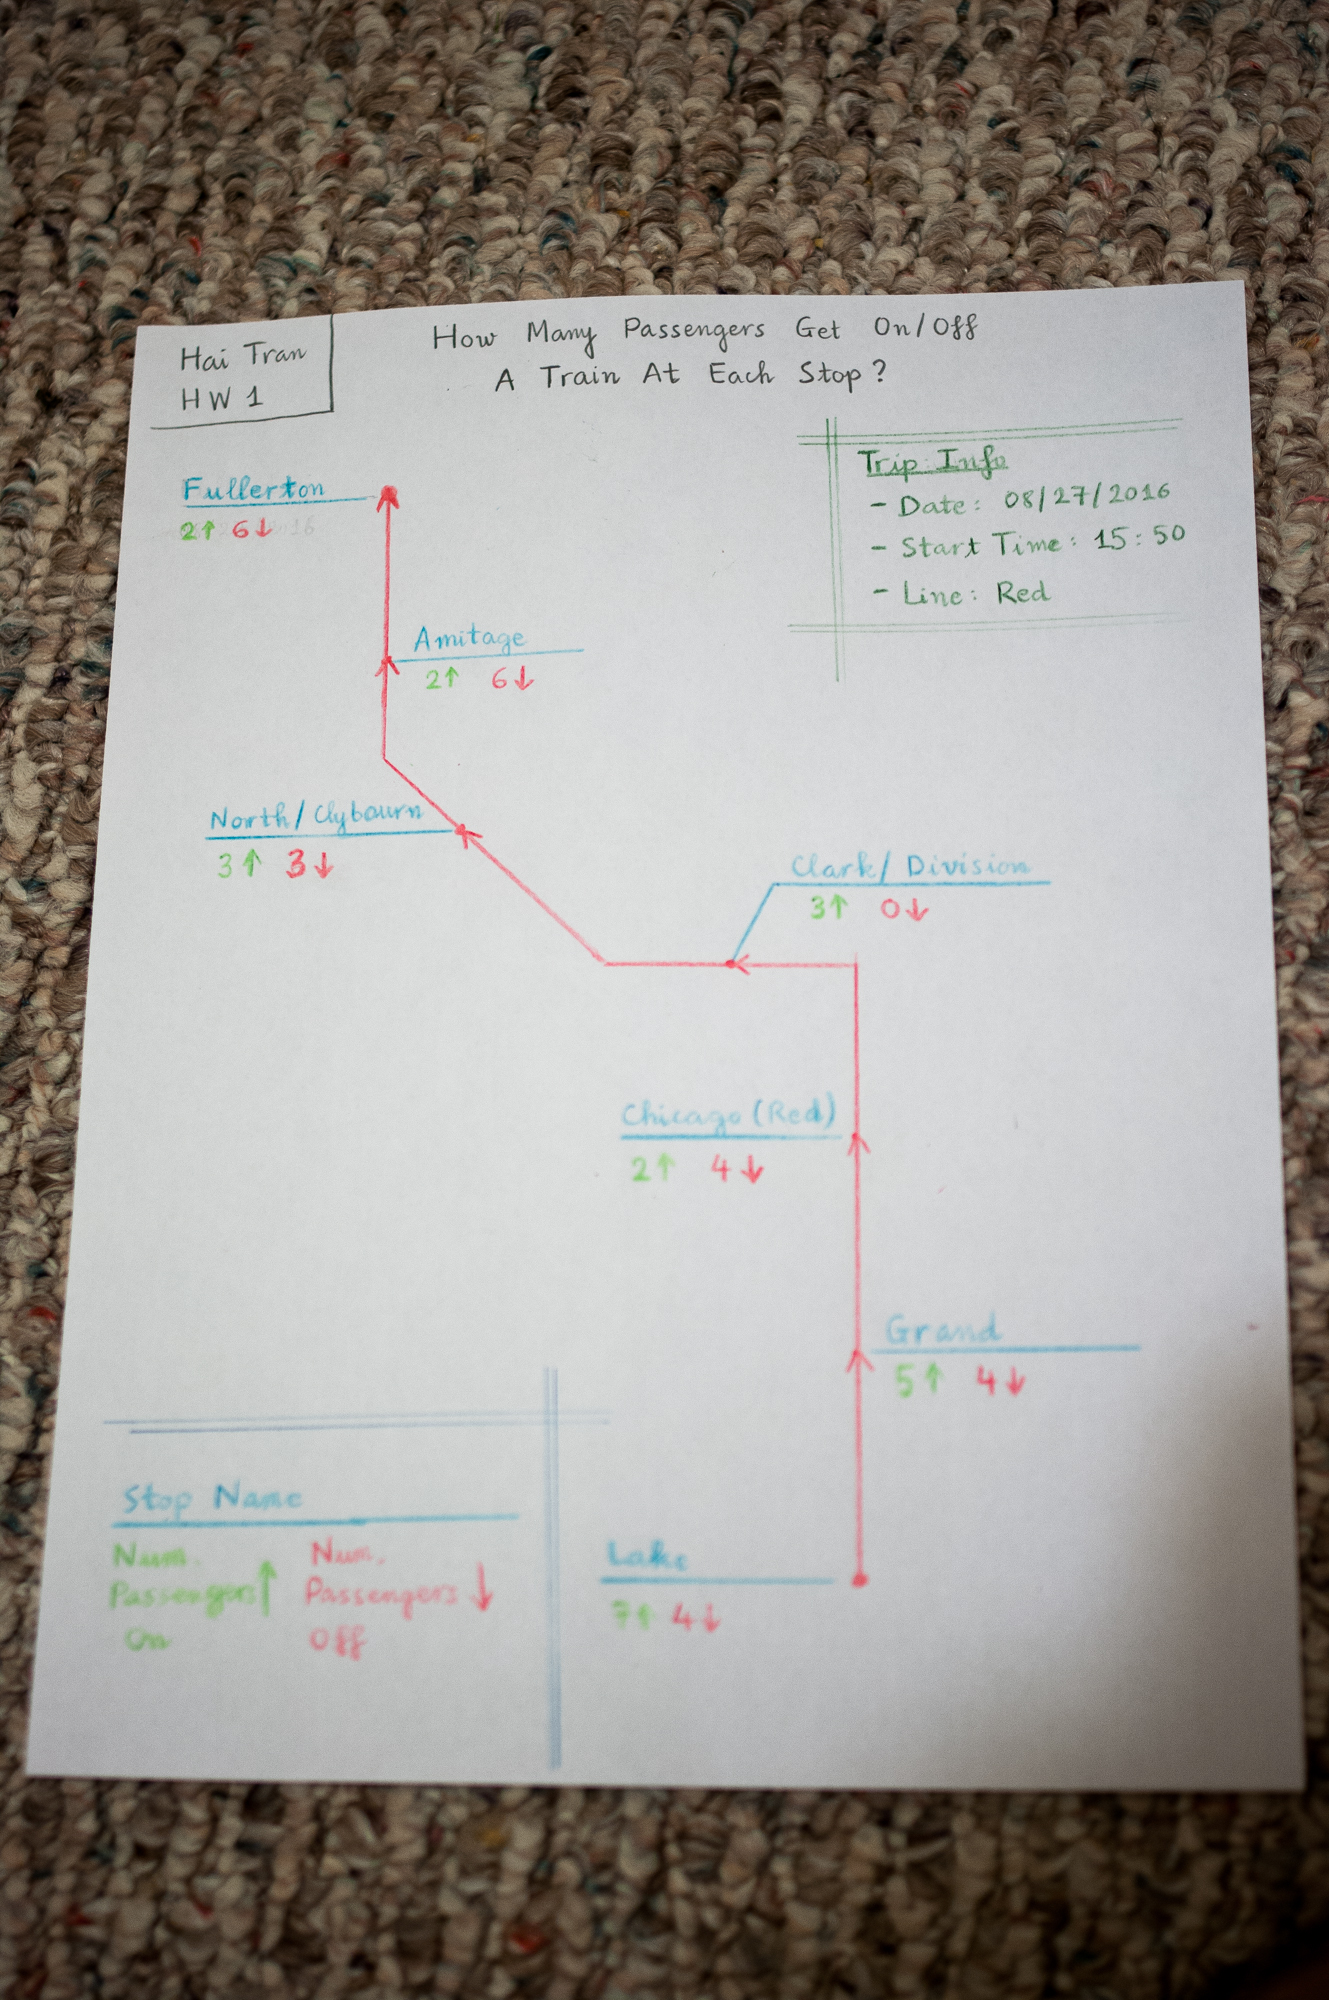 Hai Tran
HW 1
How Many Passengers Get On/Off
A Train At Each Stop?
Trip Info
- Date: 08/27/2016
- Start Time: 15:50
- Line: Red
Fullerton
2↑ 6↓
Amitage
2↑ 6↓
North/Clybourn
3↑ 3↓
Clark/Division
3↑ 0↓
Chicago (Red)
2↑ 4↓
Grand
5↑ 4↓
Lake
7↑ 4↓
Stop Name
Num. Passengers On ↑
Num. Passengers Off ↓